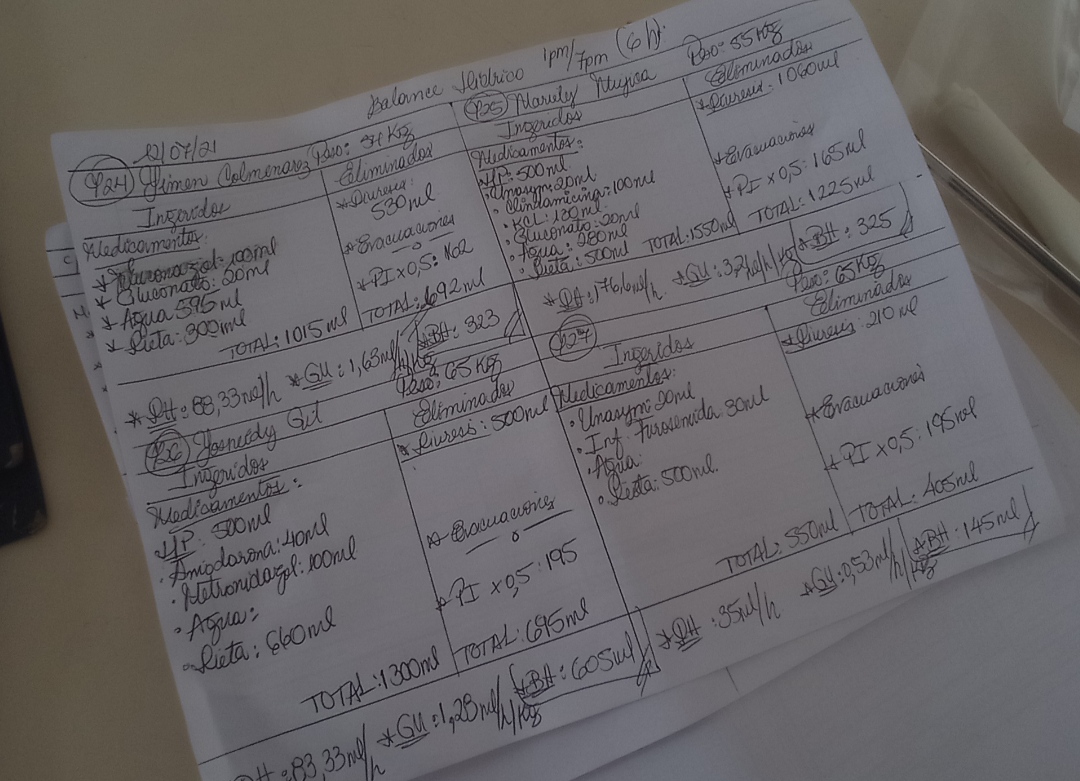 Balance Hídrico 1pm/7pm (6h).
12/07/21
P24 Yimen Colmenarez Peso: 54 Kg
Ingeridos
Medicamentos:
* Fluconazol: 100ml
* Gluconato: 20ml
* Agua 595 ml
* Dieta: 300ml
TOTAL: 1015 ml
Eliminados
* Diuresis:
530ml
* Evacuaciones
0
* PI x 0,5: 162
TOTAL: 692ml
* DH: 88,33ml/h * GU: 1,63ml/h/Kg * BH: 323
P25 Mariely Peso: 55 Kg
Ingeridos
Medicamentos:
HP: 500ml
• Unasyn: 20ml
• Clindamicina: 100ml
• KCL: 130ml
• Gluconato: 20ml
• Agua: 280ml
• Dieta: 500ml
TOTAL: 1550ml
Eliminados
* Diuresis: 1060ml
* Evacuaciones
* PI x 0,5: 165ml
TOTAL: 1225ml
* DH: 176,6ml/h * GU: 3,2ml/h/Kg * BH: 325
P26 Gil Peso: 65 Kg
Ingeridos
Medicamentos:
HP: 500ml
• Amiodarona: 40ml
• Metronidazol: 100ml
• Agua:
• Dieta: 660ml
TOTAL: 1300ml
Eliminados
* Diuresis: 500ml
* Evacuaciones
0
* PI x 0,5: 195
TOTAL: 695ml
DH: 83,33ml/h * GU: 1,28ml/h/Kg * BH: 605ml
P27 Peso: 65 Kg
Ingeridos
Medicamentos:
• Unasyn: 20ml
• Inf. Furosemida: 30ml
• Agua:
• Dieta: 500ml
TOTAL: 550ml
Eliminados
* Diuresis: 210 ml
* Evacuaciones
* PI x 0,5: 195ml
TOTAL: 405ml
* DH: 35ml/h * GU: 0,53ml/h/Kg * BH: 145ml